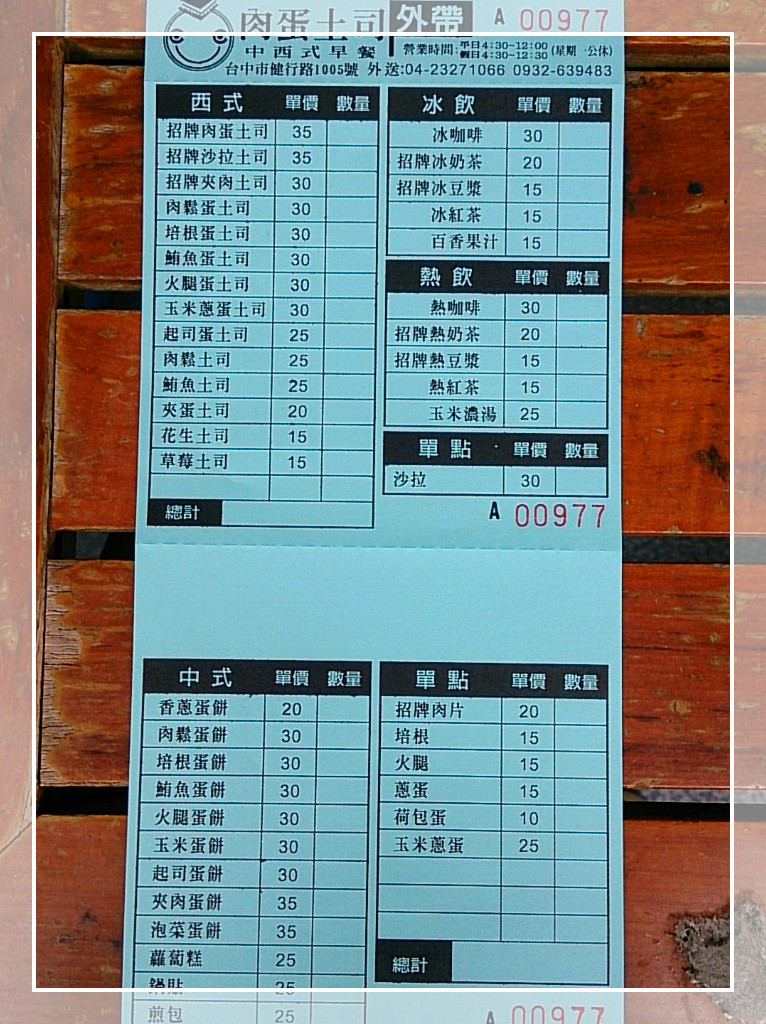 肉蛋土司 外帶 A 00977
中西式早餐 營業時間:平日4:30~12:00 (星期一公休)
假日4:30~12:30
台中市健行路1005號 外送:04-23271066 0932-639483
西式 單價 數量
招牌肉蛋土司 35
招牌沙拉土司 35
招牌夾肉土司 30
肉鬆蛋土司 30
培根蛋土司 30
鮪魚蛋土司 30
火腿蛋土司 30
玉米蔥蛋土司 30
起司蛋土司 25
肉鬆土司 25
鮪魚土司 25
夾蛋土司 20
花生土司 15
草莓土司 15
總計
冰飲 單價 數量
冰咖啡 30
招牌冰奶茶 20
招牌冰豆漿 15
冰紅茶 15
百香果汁 15
熱飲 單價 數量
熱咖啡 30
招牌熱奶茶 20
招牌熱豆漿 15
熱紅茶 15
玉米濃湯 25
單點 單價 數量
沙拉 30
A 00977
中式 單價 數量
香蔥蛋餅 20
肉鬆蛋餅 30
培根蛋餅 30
鮪魚蛋餅 30
火腿蛋餅 30
玉米蛋餅 30
起司蛋餅 30
夾肉蛋餅 35
泡菜蛋餅 35
蘿蔔糕 25
鍋貼 25
煎包 25
單點 單價 數量
招牌肉片 20
培根 15
火腿 15
蔥蛋 15
荷包蛋 10
玉米蔥蛋 25
總計
A 00977